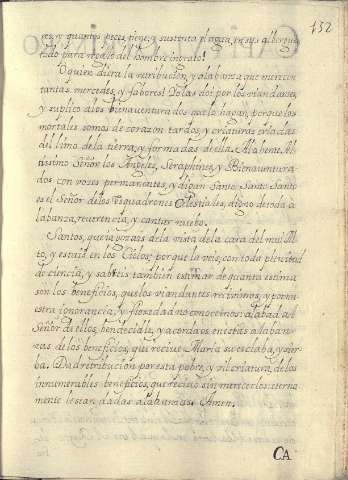 132
res, y quantos peces tiene, y sustenta el agua, en sus albergues
todo para regalo del hombre ingrato!
O quien diera la retribucion, y alabanza que merecen
tantas mercedes, y fabores! Yo las doi por los viandantes,
y suplico a los bienaventurados que lo hagan, porque los
mortales somos de corazon tardos, y criaturas criadas
del limo de la tierra, y formadas de ella. Alabente Al-
tissimo Señor los Angeles, Seraphines, y Bienaventura-
dos con vozes permanentes, y digan Santo, Santo, Santo
es el Señor de los esquadrones Celestiales, digno de toda a-
labanza, reverencia, y cantar nuebo.
Santos, que gozais de la vista de la cara del mui Al-
to, y estais en los Cielos; porque la veis, con toda plenitud
de ciencia, y sabeis tambien estimar de quanta estima
son los beneficios, que los viandantes recivimos, y por nu-
estra ignorancia, y floxedad no conocemos: alabad al
Señor de ellos, bendecidle, y acordaos en estas alaban-
zas de los beneficios, que recive Maria su esclaba, y sier-
ba. Dad retribucion por esta pobre, y vil criatura, de los
innumerables beneficios, que recivo sin merecerlos, eterna-
mente le sean dadas alabanzas. Amen.
CA